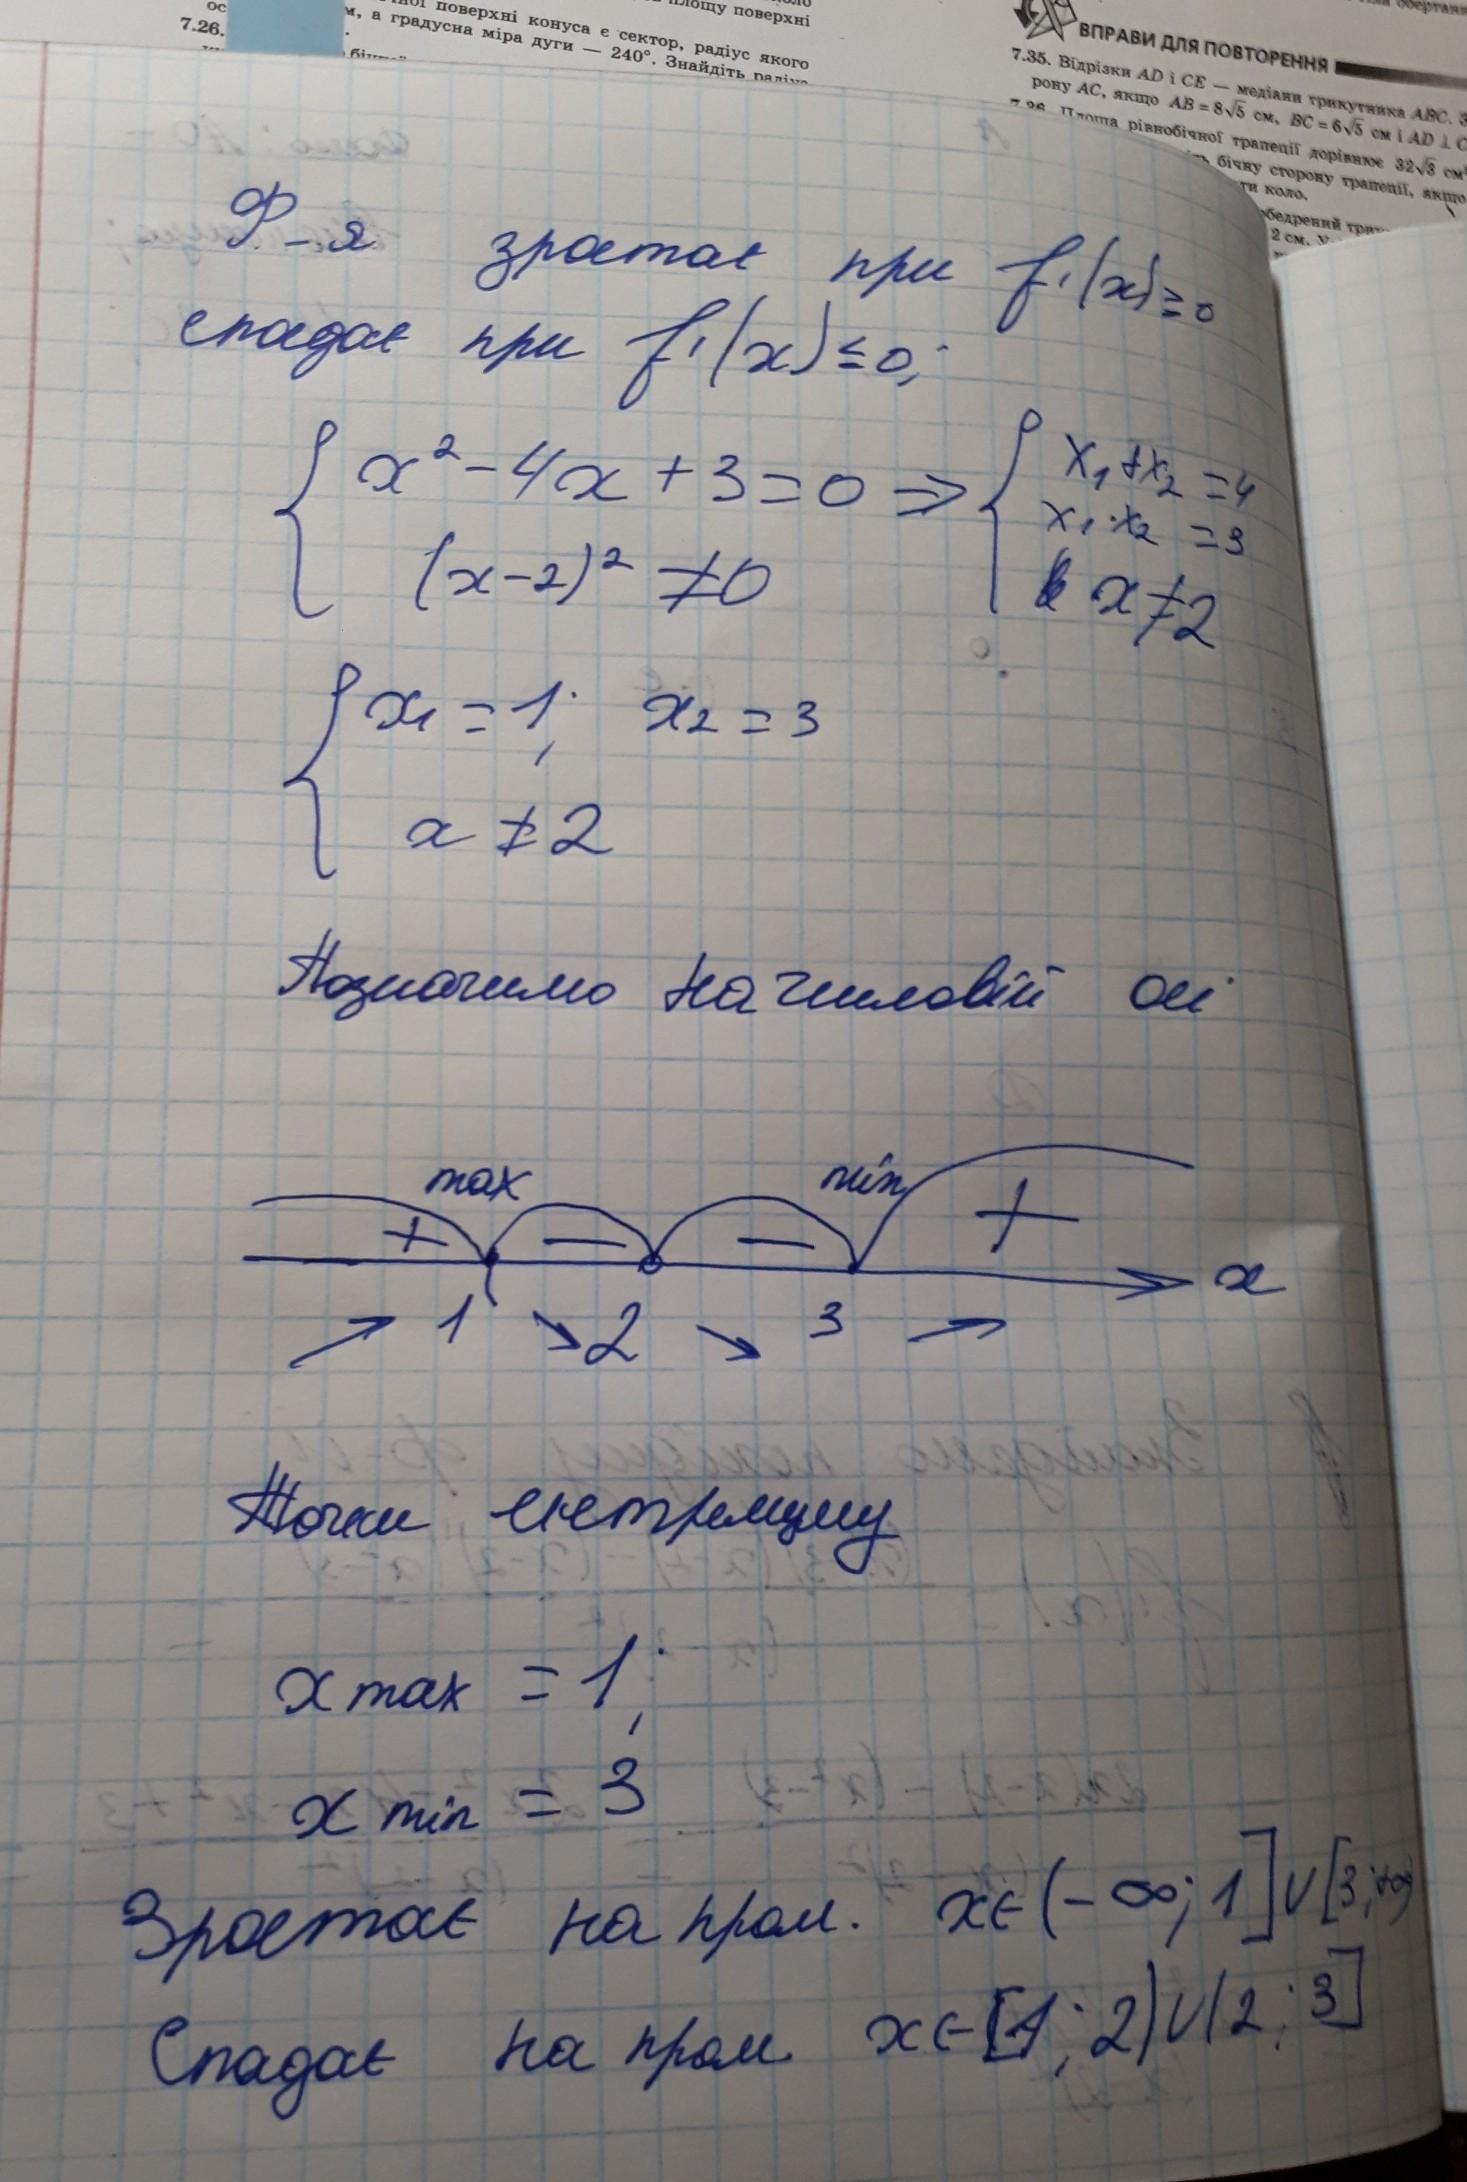 ос
ної поверхні конуса є сектор, радіус якого
7.26.
м, а градусна міра дуги — 240°. Знайдіть радіус
площу поверхні
ВПРАВИ ДЛЯ ПОВТОРЕННЯ
7.35. Відрізки AD і CE — медіани трикутника ABC. З
рону AC, якщо AB = 8√5 см, BC = 6√5 см і AD ⊥ C
7.36. Площа рівнобічної трапеції дорівнює 32√3 см²
бічну сторону трапеції, якщо
ти коло.
2 см.
Ф-я зростає при f'(x)≥0
спадає при f'(x)≤0;
x²-4x+3=0 ⇒ x₁+x₂=4
x₁·x₂=3
(x-2)²≠0 x≠2
x₁=1; x₂=3
x≠2
Позначимо на числовій осі
max min
+ − − + x
1 2 3
Точки екстремуму
x max = 1;
x min = 3
Зростає на пром. x∈(-∞;1]∪[3;+∞)
Спадає на пром. x∈[1;2)∪(2;3]